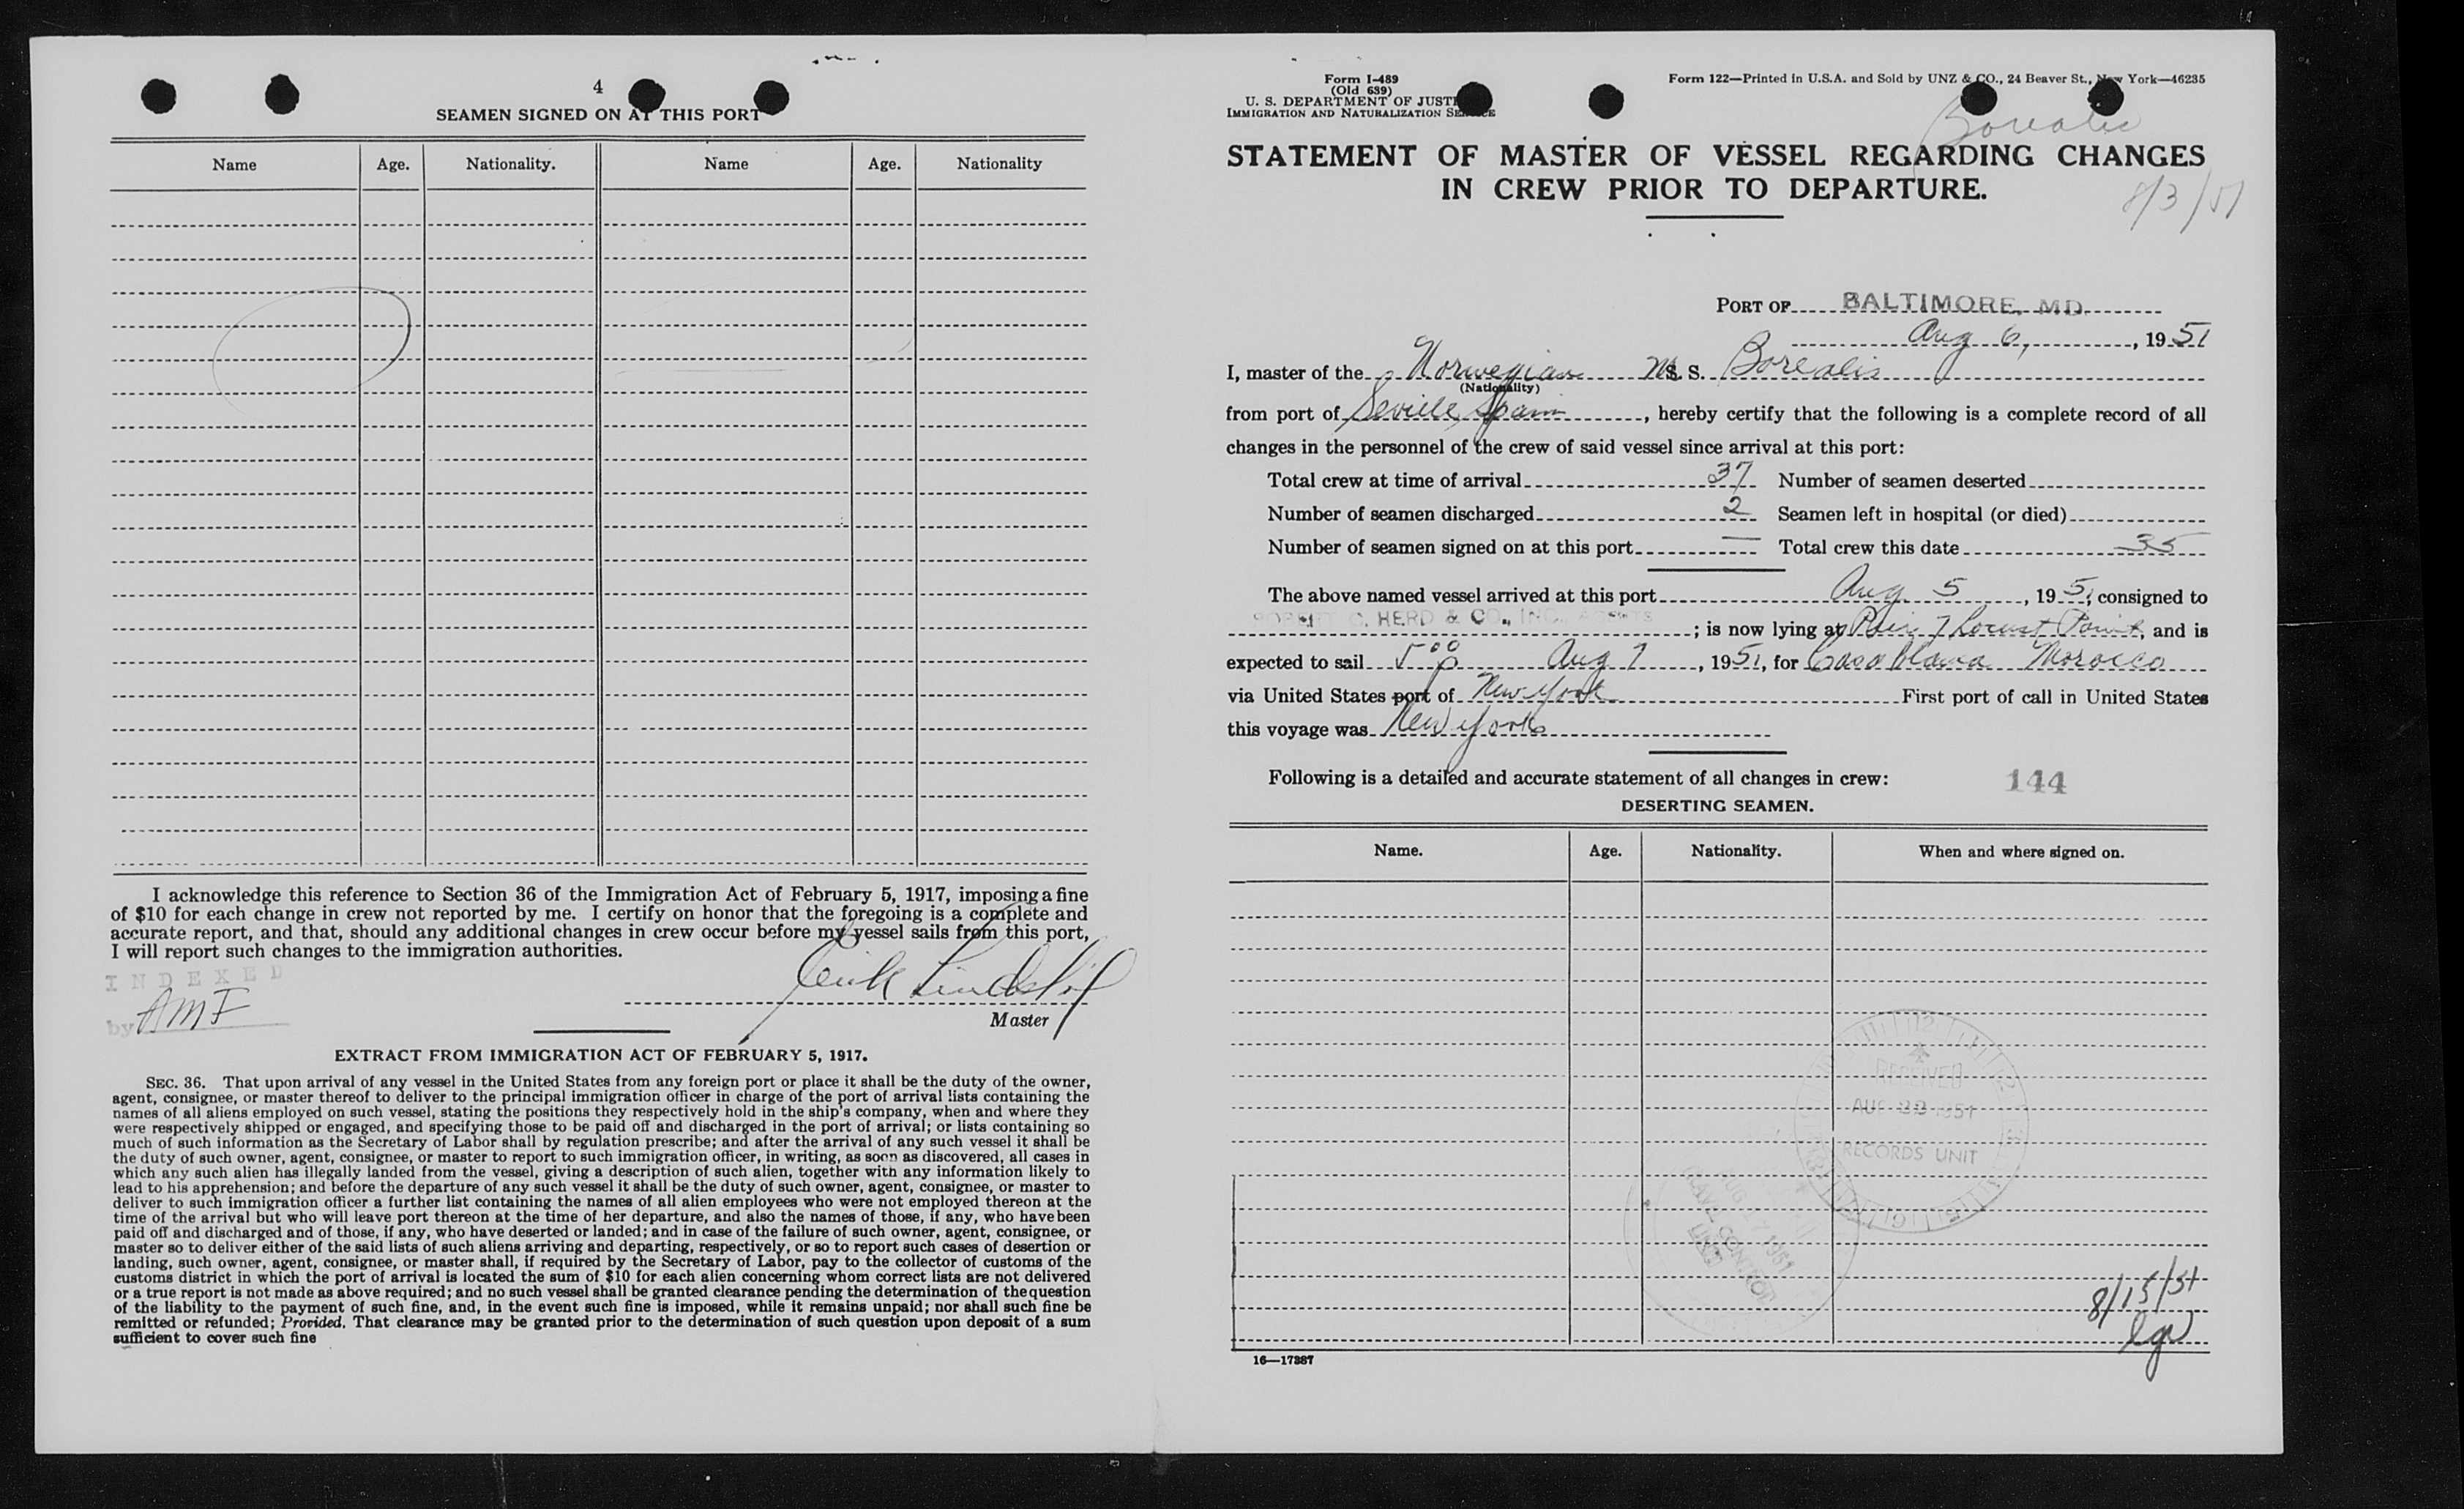 4
SEAMEN SIGNED ON AT THIS PORT
Name Age. Nationality. Name Age. Nationality
I acknowledge this reference to Section 36 of the Immigration Act of February 5, 1917, imposing a fine
of $10 for each change in crew not reported by me. I certify on honor that the foregoing is a complete and
accurate report, and that, should any additional changes in crew occur before my vessel sails from this port,
I will report such changes to the immigration authorities.
INDEXED
by AMF
Master
EXTRACT FROM IMMIGRATION ACT OF FEBRUARY 5, 1917.
SEC. 36. That upon arrival of any vessel in the United States from any foreign port or place it shall be the duty of the owner,
agent, consignee, or master thereof to deliver to the principal immigration officer in charge of the port of arrival lists containing the
names of all aliens employed on such vessel, stating the positions they respectively hold in the ship's company, when and where they
were respectively shipped or engaged, and specifying those to be paid off and discharged in the port of arrival; or lists containing so
much of such information as the Secretary of Labor shall by regulation prescribe; and after the arrival of any such vessel it shall be
the duty of such owner, agent, consignee, or master to report to such immigration officer, in writing, as soon as discovered, all cases in
which any such alien has illegally landed from the vessel, giving a description of such alien, together with any information likely to
lead to his apprehension; and before the departure of any such vessel it shall be the duty of such owner, agent, consignee, or master to
deliver to such immigration officer a further list containing the names of all alien employees who were not employed thereon at the
time of the arrival but who will leave port thereon at the time of her departure, and also the names of those, if any, who have been
paid off and discharged and of those, if any, who have deserted or landed; and in case of the failure of such owner, agent, consignee, or
master so to deliver either of the said lists of such aliens arriving and departing, respectively, or so to report such cases of desertion or
landing, such owner, agent, consignee, or master shall, if required by the Secretary of Labor, pay to the collector of customs of the
customs district in which the port of arrival is located the sum of $10 for each alien concerning whom correct lists are not delivered
or a true report is not made as above required; and no such vessel shall be granted clearance pending the determination of the question
of the liability to the payment of such fine, and, in the event such fine is imposed, while it remains unpaid; nor shall such fine be
remitted or refunded; Provided, That clearance may be granted prior to the determination of such question upon deposit of a sum
sufficient to cover such fine
Form I-489
(Old 689)
U. S. DEPARTMENT OF JUSTICE
IMMIGRATION AND NATURALIZATION SERVICE
Form 122—Printed in U.S.A. and Sold by UNZ & CO., 24 Beaver St., New York—46235
Borealis
STATEMENT OF MASTER OF VESSEL REGARDING CHANGES
IN CREW PRIOR TO DEPARTURE.
8/3/51
PORT OF BALTIMORE, MD.
Aug 6, , 1951
I, master of the Norwegian M. S. Borealis
(Nationality)
from port of Seville, Spain , hereby certify that the following is a complete record of all
changes in the personnel of the crew of said vessel since arrival at this port:
Total crew at time of arrival 37 Number of seamen deserted
Number of seamen discharged 2 Seamen left in hospital (or died)
Number of seamen signed on at this port — Total crew this date 35
The above named vessel arrived at this port Aug 5 , 1951, consigned to
ROBERT C. HERD & CO., INC. AGENTS ; is now lying at Pier 7 Locust Point, and is
expected to sail 5 00 p Aug 7 , 1951, for Casablanca Morocco
via United States port of New York First port of call in United States
this voyage was New York
Following is a detailed and accurate statement of all changes in crew:
144
DESERTING SEAMEN.
Name. Age. Nationality. When and where signed on.
RECEIVED
AUG 1951
RECORDS UNIT
AUG 17 1951
CONTROL
UNIT
8/15/51
16—17387